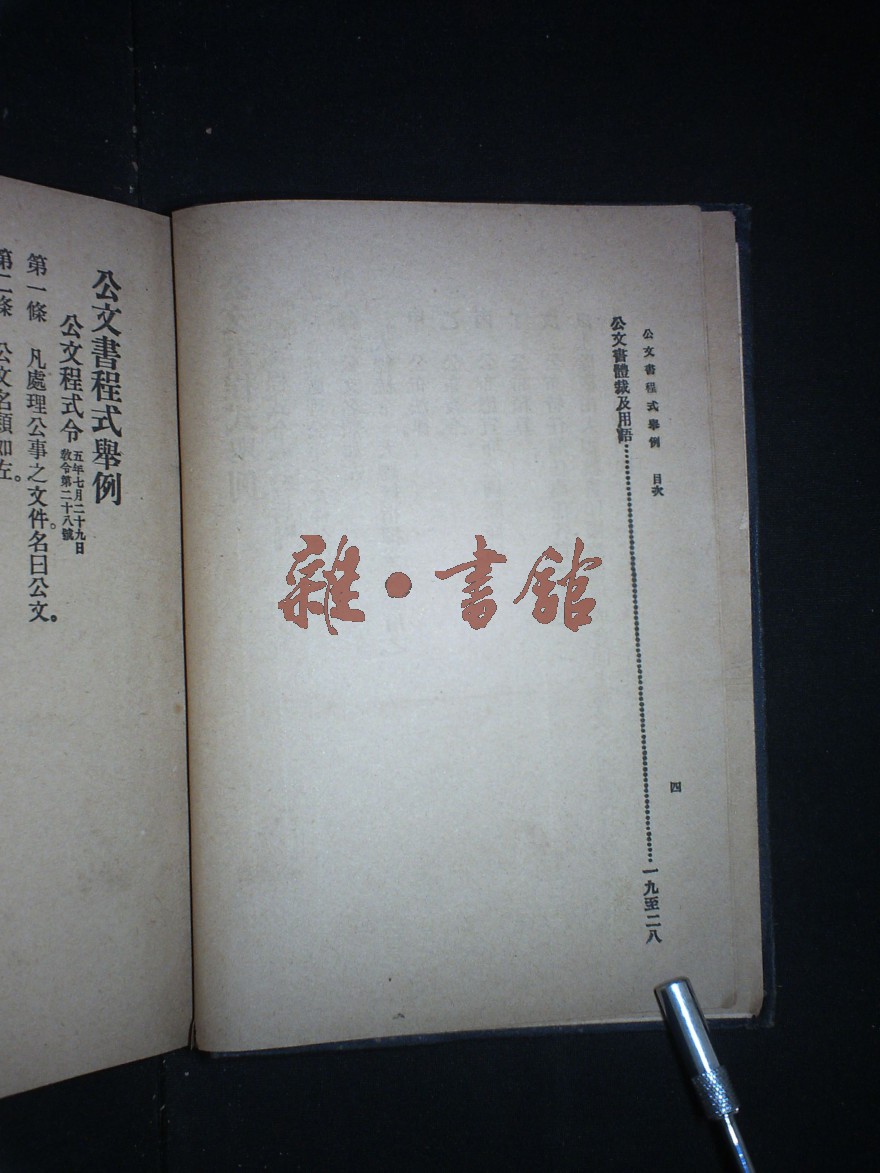 公文書程式舉例 目次 四
公文書體裁及用語……一九至二八
公文書程式舉例
公文程式令 五年七月二十九日
教令第二十八號
第一條 凡處理公事之文件名曰公文。
第二條 公文名類如左。
雜·書館